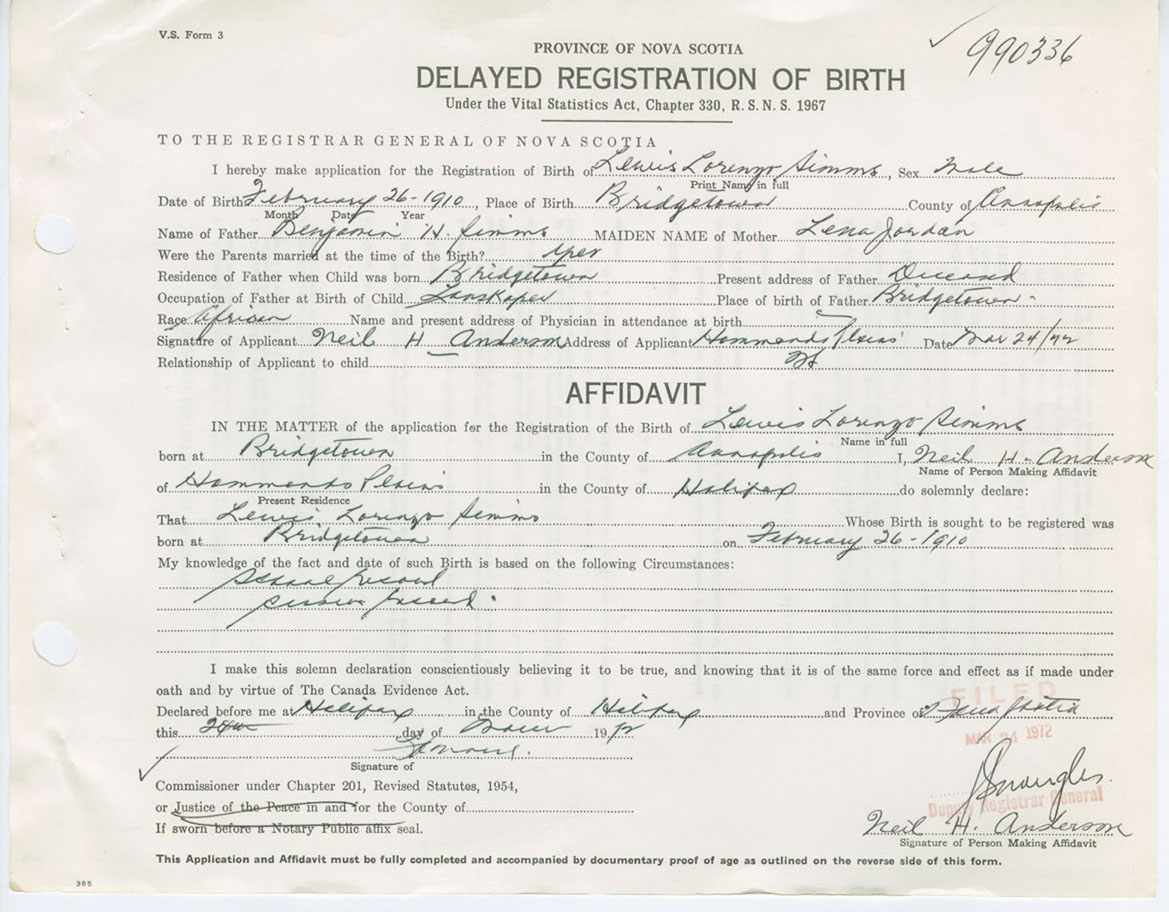 V.S. Form 3
990336
PROVINCE OF NOVA SCOTIA
DELAYED REGISTRATION OF BIRTH
Under the Vital Statistics Act, Chapter 330, R. S. N. S. 1967
TO THE REGISTRAR GENERAL OF NOVA SCOTIA
I hereby make application for the Registration of Birth of Lewis Lorenzo Simms, Sex Male
Print Name in full
Date of Birth February 26-1910, Place of Birth Bridgetown County of Annapolis
Month Date Year
Name of Father Benjamin H. Simms MAIDEN NAME of Mother Lena Jordan
Were the Parents married at the time of the Birth? yes
Residence of Father when Child was born Bridgetown Present address of Father Deceased
Occupation of Father at Birth of Child Place of birth of Father Bridgetown
Race African Name and present address of Physician in attendance at birth
Signature of Applicant Neil H. Anderson Address of Applicant Hammonds Plains Date Mar 24/72
Relationship of Applicant to child
AFFIDAVIT
IN THE MATTER of the application for the Registration of the Birth of Lewis Lorenzo Simms
Name in full
born at Bridgetown in the County of Annapolis I, Neil H. Anderson
Name of Person Making Affidavit
of Hammonds Plains in the County of Halifax do solemnly declare:
Present Residence
That Lewis Lorenzo Simms Whose Birth is sought to be registered was
born at Bridgetown on February 26-1910
My knowledge of the fact and date of such Birth is based on the following Circumstances:
record
I make this solemn declaration conscientiously believing it to be true, and knowing that it is of the same force and effect as if made under
oath and by virtue of The Canada Evidence Act.
FILED
Declared before me at Halifax in the County of Halifax and Province of Nova Scotia
this 24th day of 1972
MAR 24 1972
Signature of
Commissioner under Chapter 201, Revised Statutes, 1954,
or Justice of the Peace in and for the County of
Deputy Registrar General
If sworn before a Notary Public affix seal.
Neil H. Anderson
Signature of Person Making Affidavit
This Application and Affidavit must be fully completed and accompanied by documentary proof of age as outlined on the reverse side of this form.
385